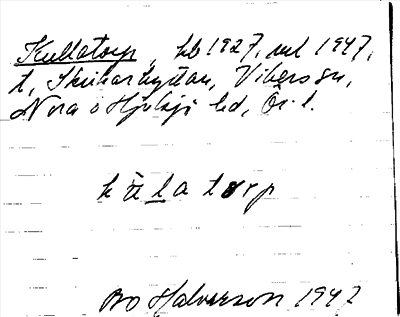 Kullatorp, hb 1927, ml 1947,
t, Skrikarhyttan, Vikers sn,
Nora o Hjulsjö hd, Ör. l.
kùlatorp
Bo Halvarson 1947